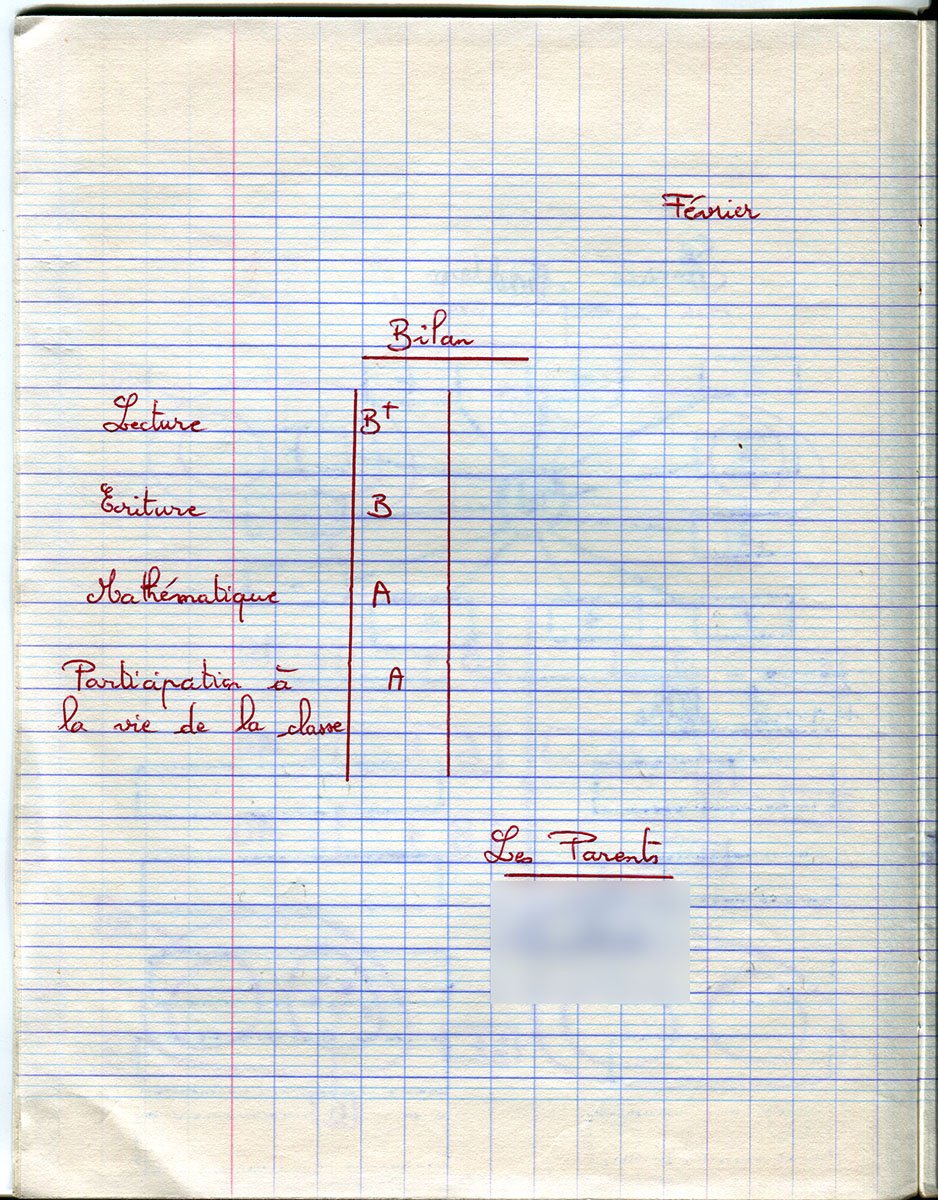 Février
Bilan
Lecture B+
Ecriture B
Mathématique A
Participation à A
la vie de la classe
Les Parents